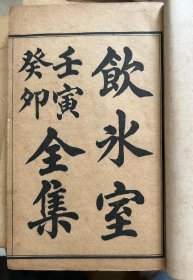 飲冰室
壬寅
癸卯
全集